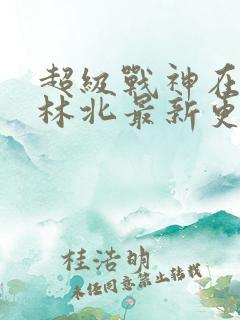 超級戰神在
林北最新更
桂浩明
未經同意禁止轉載